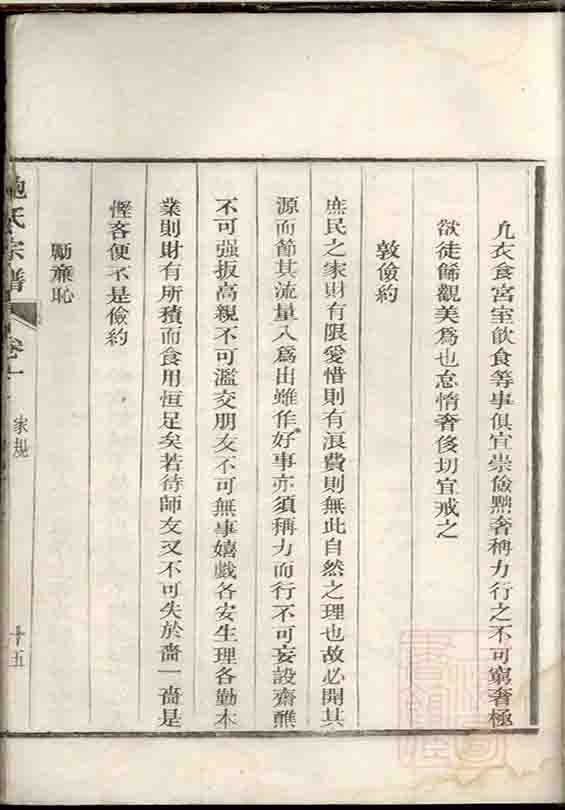 凢衣食宮室飲食等事俱宜崇儉黜奢稱力行之不可窮奢極
欲徒餙觀美爲也怠惰奢侈切宜戒之
敦儉約
庶民之家財有限愛惜則有浪費則無此自然之理也故必開其
源而節其流量入爲出雖作好事亦須稱力而行不可妄設齋醮
不可强扳高親不可濫交朋友不可無事嬉戲各安生理各勤本
業則財有所積而食用恒足矣若待師友又不可失於嗇一嗇是
慳吝便不是儉約
勵亷恥
鮑氏宗譜 卷一 家規 十五